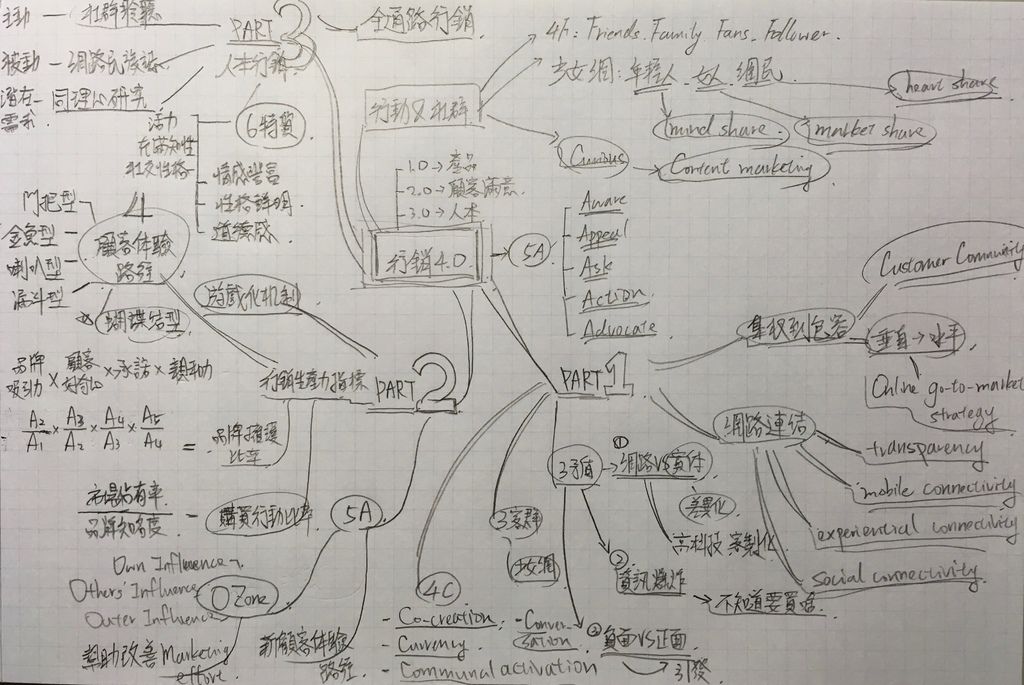 主動 — 社群聆聽
被動 — 網路民族誌
潛在 — 同理心研究
需求
PART 3
人本行銷
全通路行銷
6特質
活力
社交性格
情感豐富
性格鮮明
道德感
行動&社群
4F: Friends. Family. Fans. Follower.
少女網: 年輕人. 女人. 網民.
heart share
mind share.
market share
Curious
Content marketing
1.0→產品
2.0→顧客滿意
3.0→人本
行銷4.0
5A
Aware
Appeal
Ask
Action
Advocate
4
顧客体驗
路徑
門把型
金魚型
喇叭型
漏斗型
蝴蝶結型
遊戲化机制
PART 2
行銷生產力指標
品牌吸引力 × 顧客好奇心 × 承諾 × 親和力
A2/A1 × A3/A2 × A4/A3 × A5/A4 =
品牌擁護
比率
市場佔有率
品牌知名度
購買行動比率
5A
O Zone
Own Influence
Others' Influence
Outer Influence
幫助改善Marketing
effort.
新顧客体驗
路徑
PART 1
集权到包容
Customer Community
垂直→水平
Online go-to-market
strategy
網路連結
transparency
mobile connectivity
experiential connectivity
social connectivity.
3矛盾
① 網路VS實体
差異化
高科技 客製化
② 資訊爆炸
不知道要買啥
③ 負面VS正面
引發
3客群
少女網
4C
- Co-creation.
- Currency
- Communal activation
- Conver-
sation